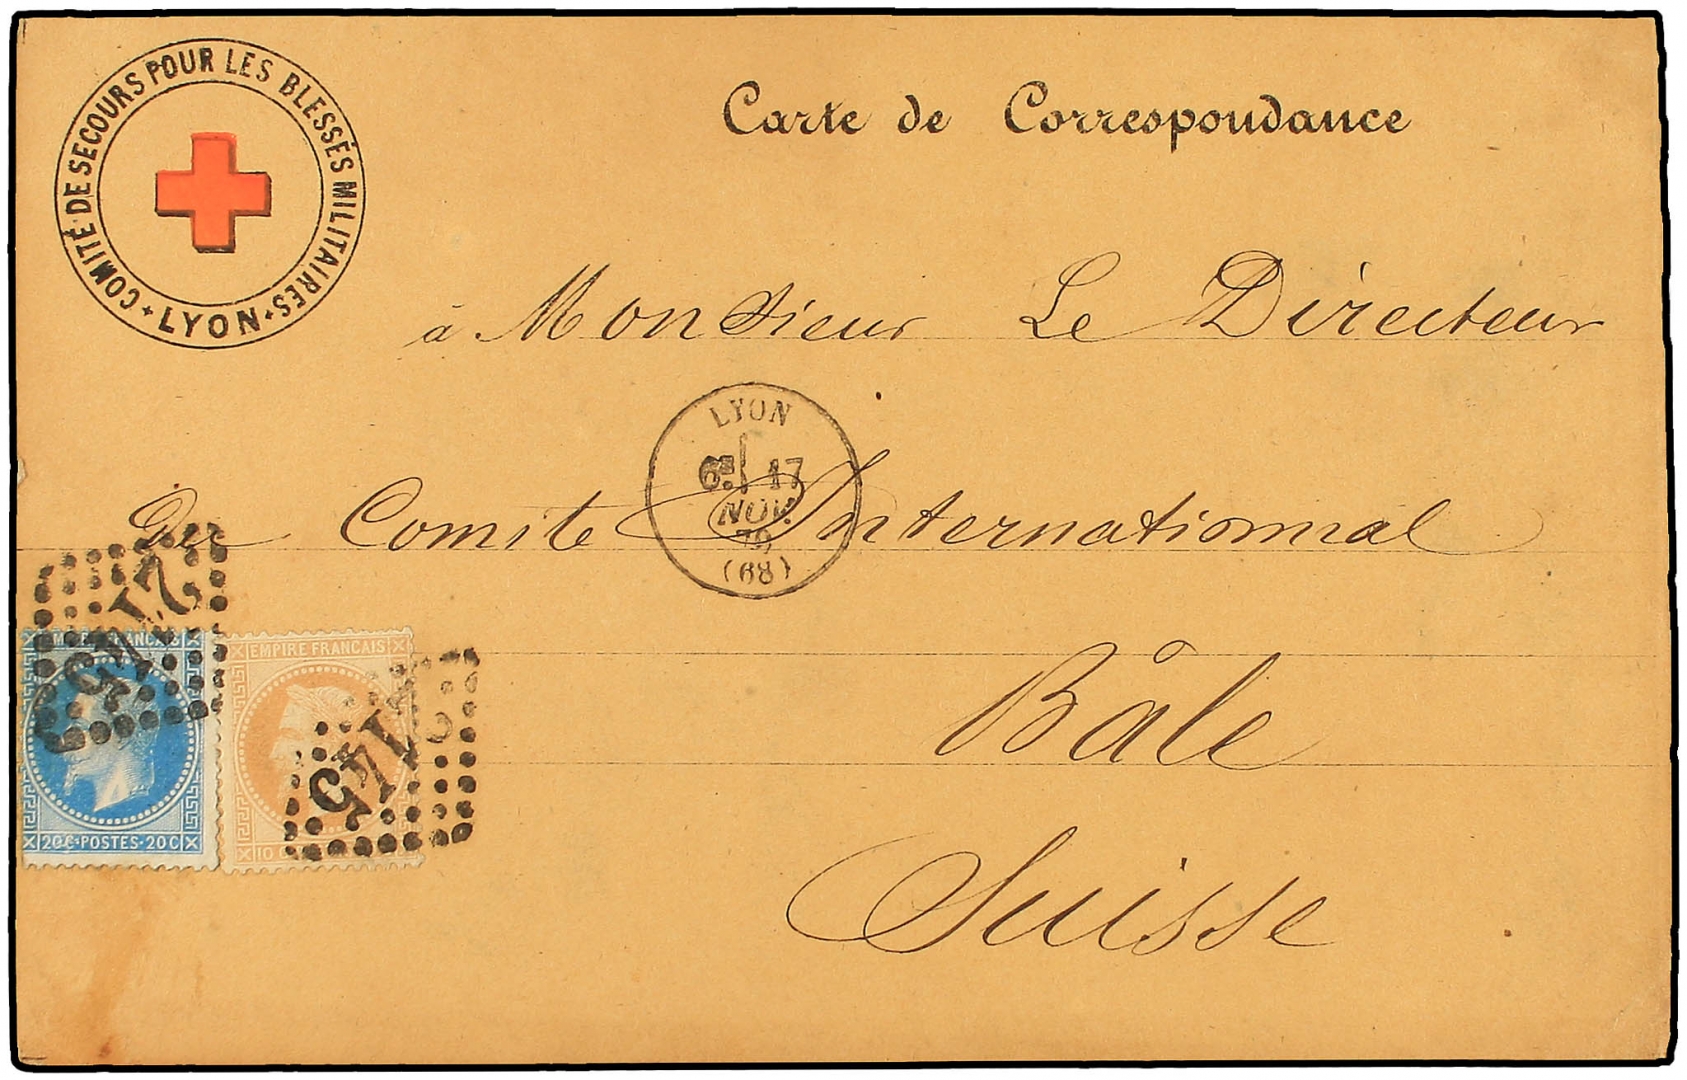 COMITÉ DE SECOURS POUR LES BLESSÉS MILITAIRES
LYON
Carte de Correspondance
à Monsieur Le Directeur
LYON
6E 17
NOV.
70
(68)
Du Comite Internationnal
Bâle
Suisse
2145
EMPIRE FRANCAIS
20C·POSTES·20C
2145
EMPIRE FRANCAIS
10 C